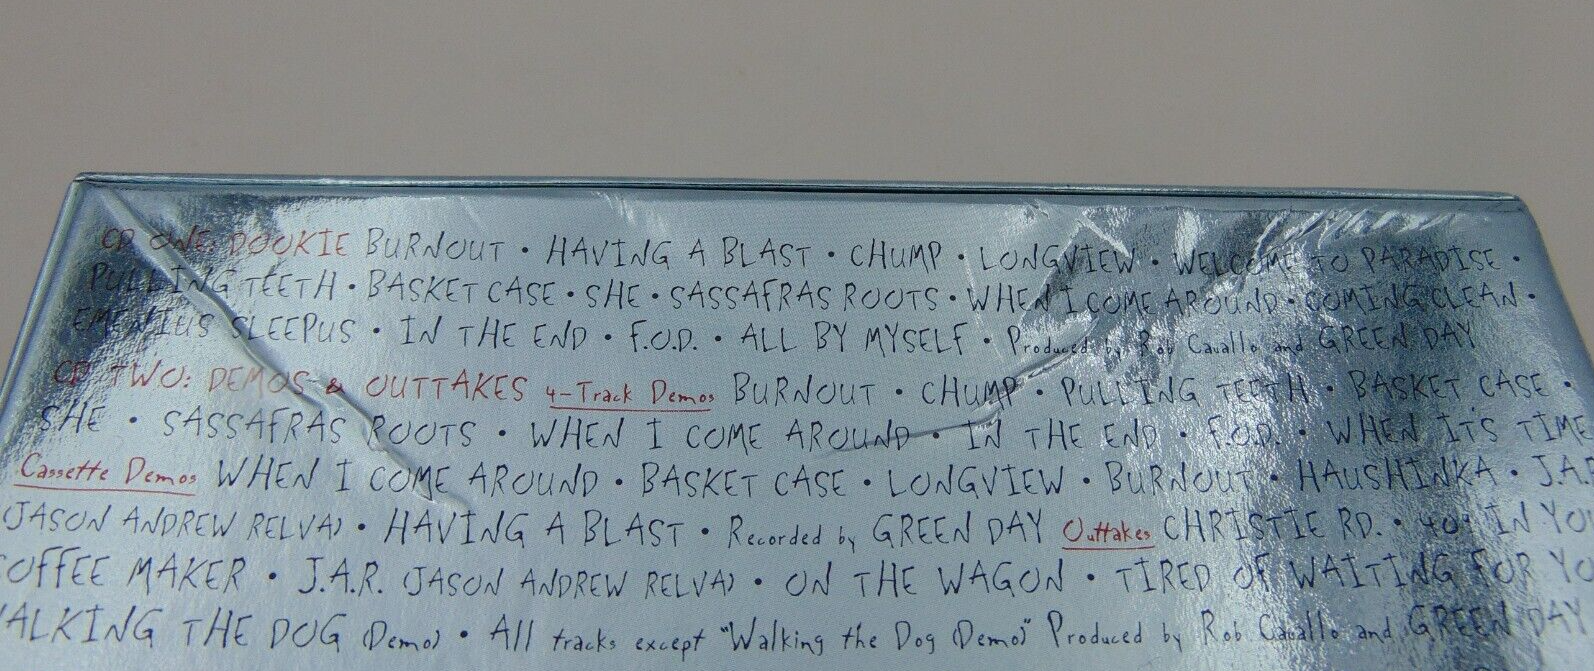 CD ONE: DOOKIE BURNOUT • HAVING A BLAST • CHUMP • LONGVIEW • WELCOME TO PARADISE •
PULLING TEETH • BASKET CASE • SHE • SASSAFRAS ROOTS • WHEN I COME AROUND • COMING CLEAN •
EMENIUS SLEEPUS • IN THE END • F.O.D. • ALL BY MYSELF • Produced by Rob Cavallo and GREEN DAY
CD TWO: DEMOS & OUTTAKES 4-Track Demos BURNOUT • CHUMP • PULLING TEETH • BASKET CASE •
SHE • SASSAFRAS ROOTS • WHEN I COME AROUND • IN THE END • F.O.D. • WHEN IT'S TIME
Cassette Demos WHEN I COME AROUND • BASKET CASE • LONGVIEW • BURNOUT • HAUSHINKA • J.A.R
(JASON ANDREW RELVA) • HAVING A BLAST • Recorded by GREEN DAY Outtakes CHRISTIE RD. • 409 IN YOU
COFFEE MAKER • J.A.R. (JASON ANDREW RELVA) • ON THE WAGON • TIRED OF WAITING FOR YO
WALKING THE DOG (Demo) • All tracks except "Walking the Dog (Demo)" Produced by Rob Cavallo and GREEN DAY